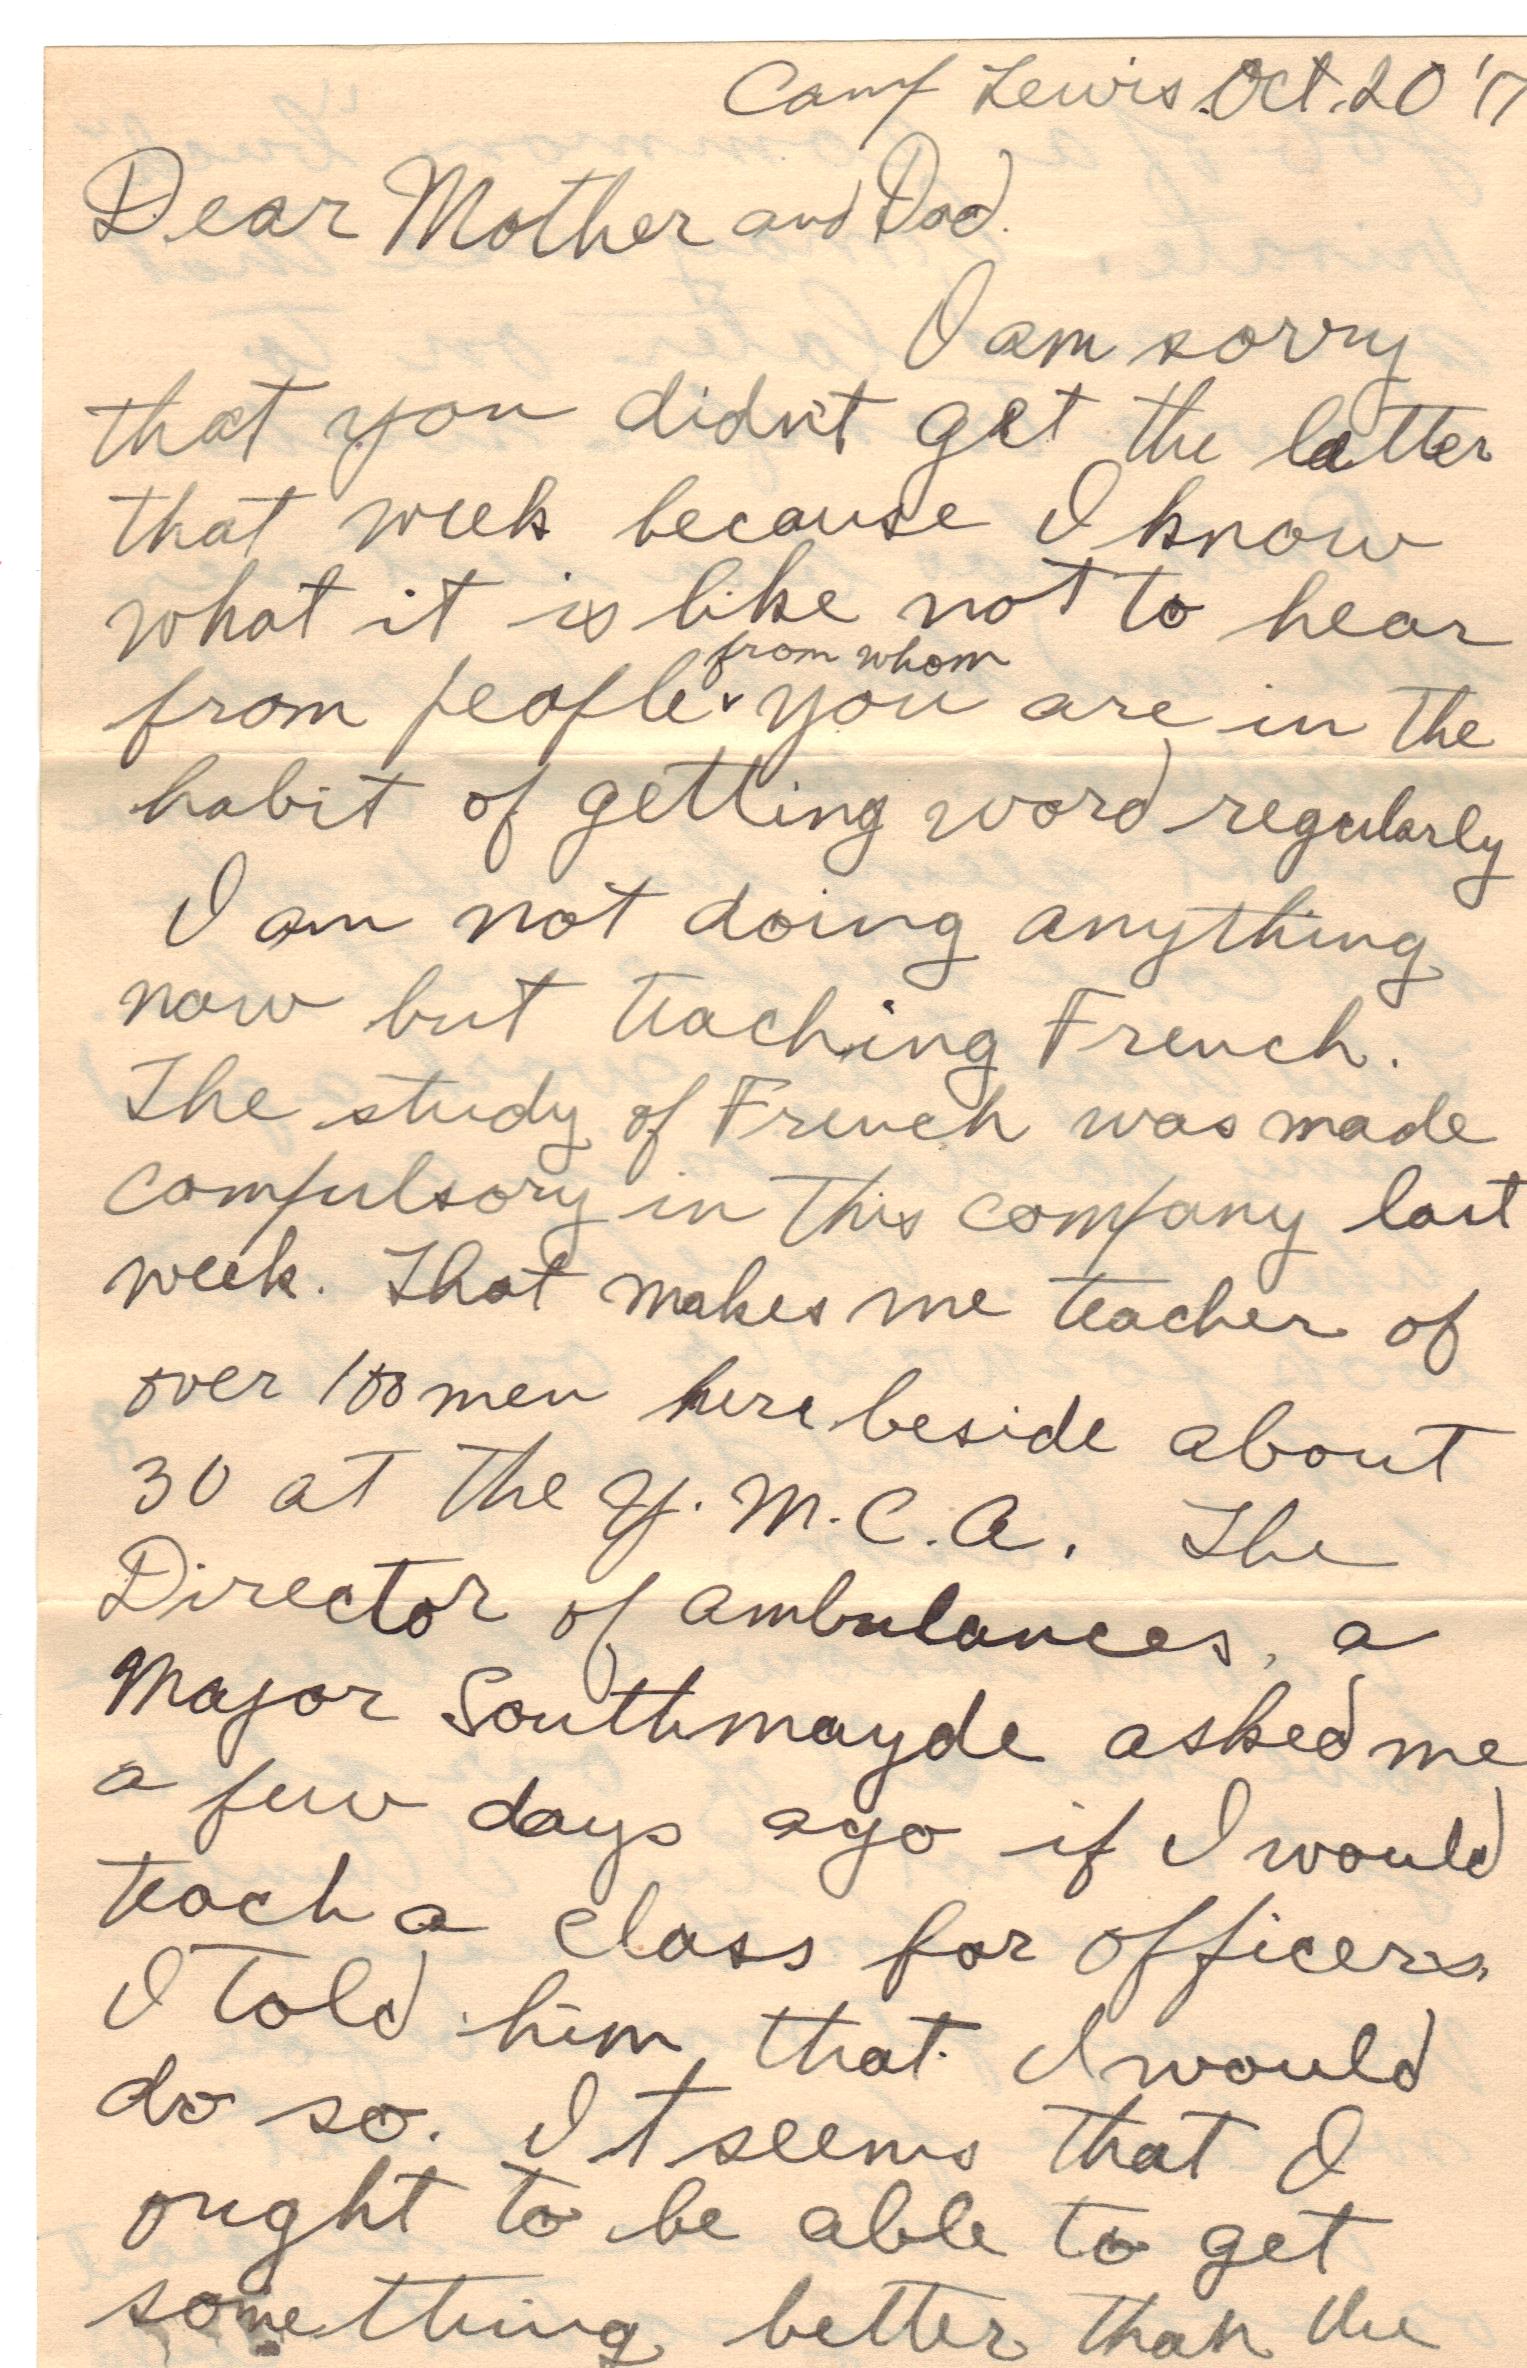 Camp Lewis. Oct. 20 '17
Dear Mother and Dad.
I am sorry
that you didn't get the latter
that week because I know
what it is like not to hear
from whom
from people you are in the
habit of getting word regularly
I am not doing anything
now but teaching French.
The study of French was made
compulsory in this company last
week. That makes me teacher of
over 100 men here beside about
30 at the Y.M.C.A. The
Director of ambulances, a
Major Southmayde asked me
a few days ago if I would
teach a class for officers.
I told him that I would
do so. It seems that I
ought to be able to get
something better than the